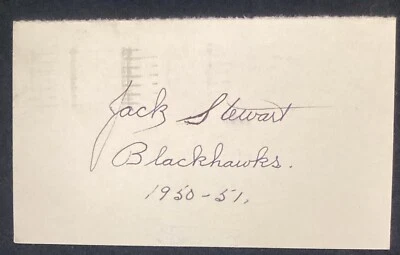 Jack Stewart
Blackhawks.
1950-51.